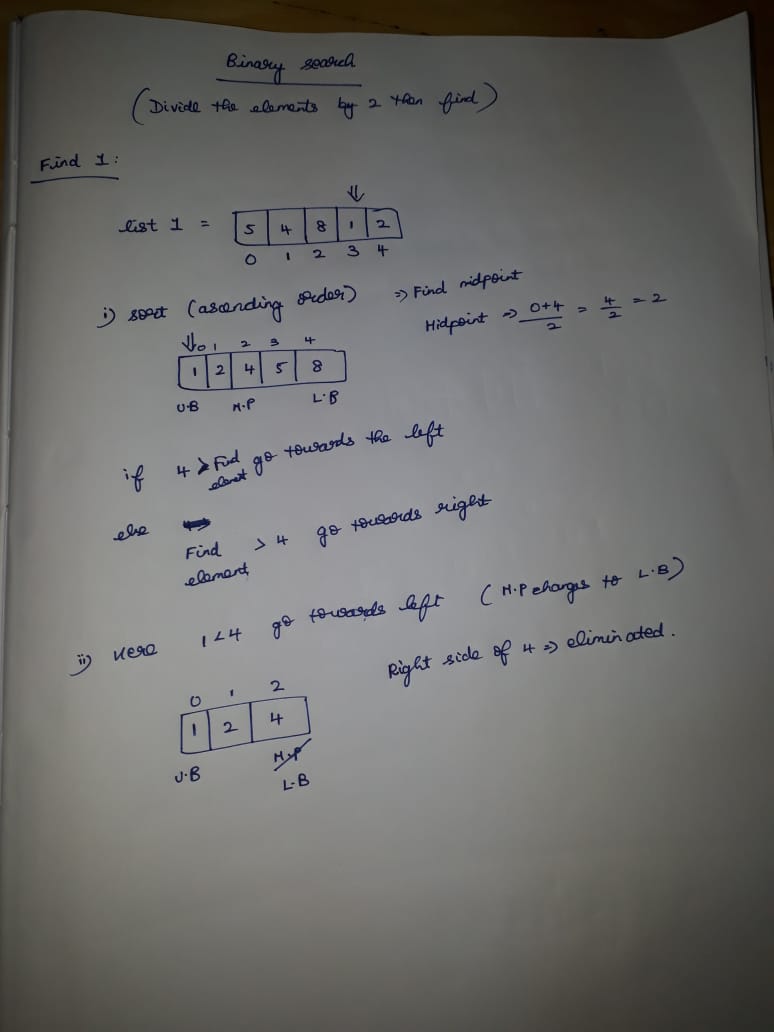 Binary search
(Divide the elements by 2 then find)
Find 1:
list 1 = 5 4 8 1 2
0 1 2 3 4
i) sort (ascending order) => Find midpoint
Midpoint => 0+4/2 = 4/2 = 2
0 1 2 3 4
1 2 4 5 8
U.B M.P L.B
if 4 > Find element go towards the left
else
Find element > 4 go towards right
ii) Here 1<4 go towards left (M.P changes to L.B)
Right side of 4 => eliminated.
0 1 2
1 2 4
U.B M.P
L-B